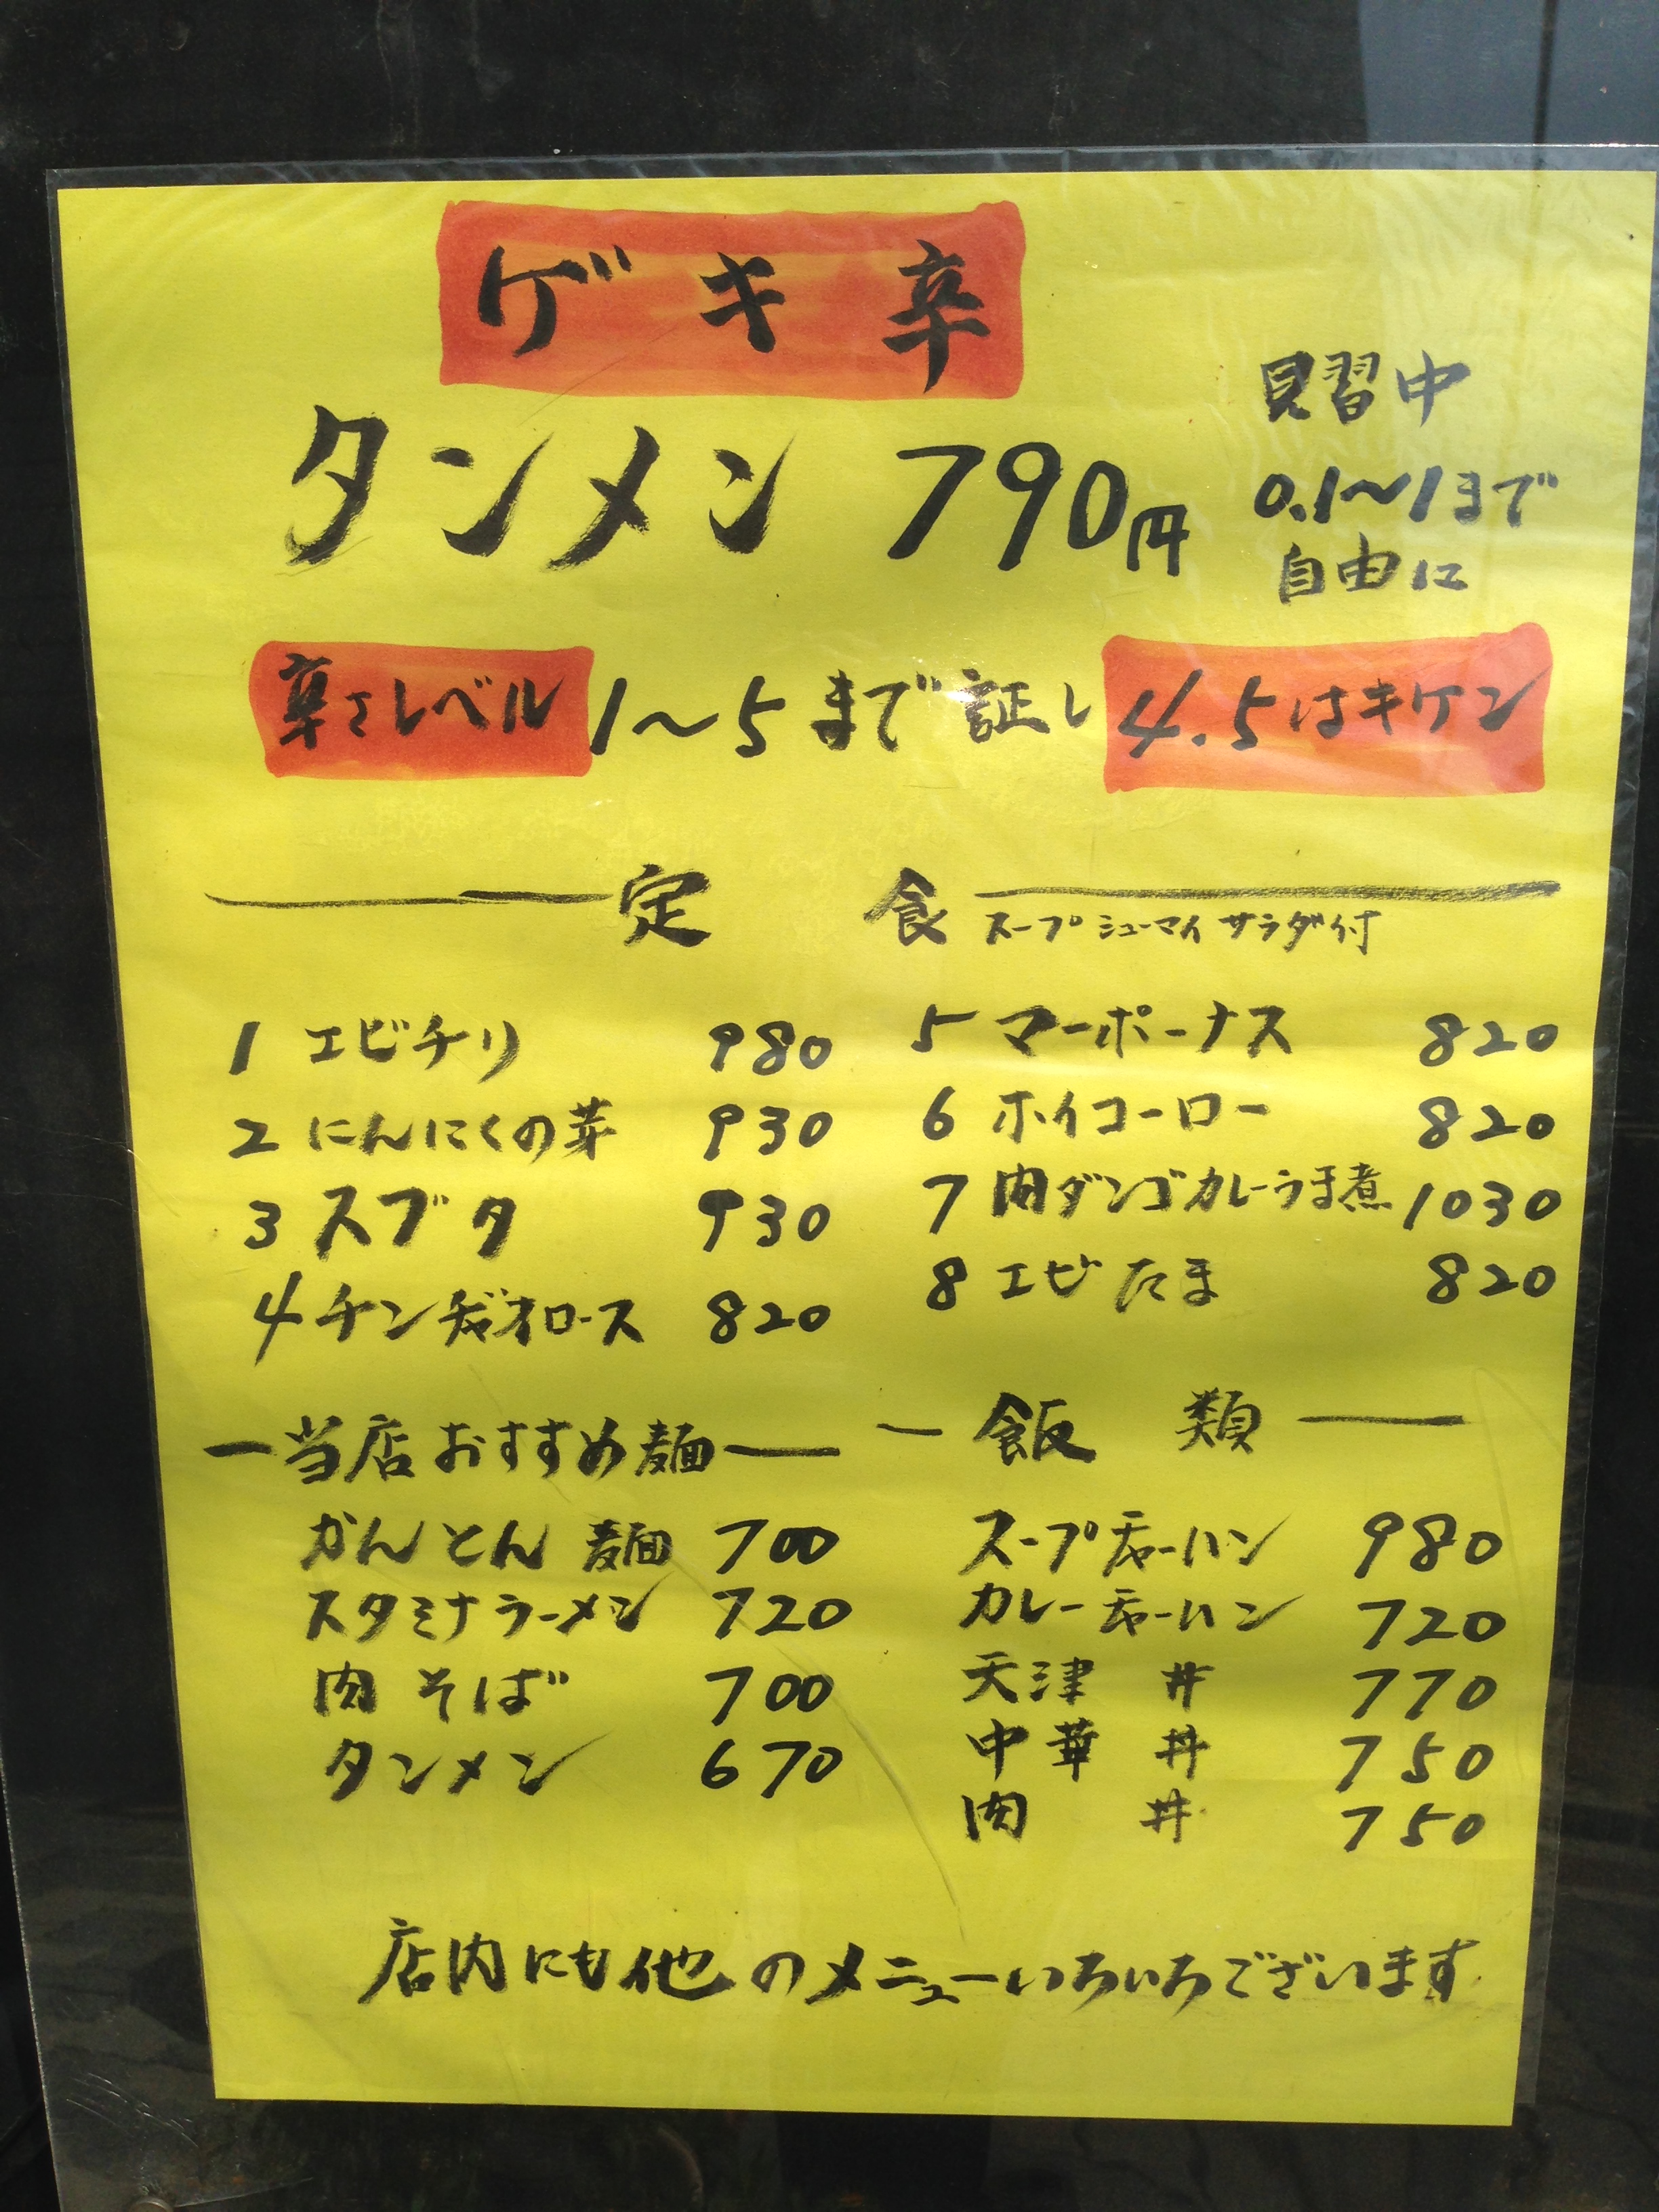 ゲキ辛
タンメン 790円
見習中
0.1～1まで
自由に
辛さレベル 1～5まで 証し 4.5はキケン
定食 スープ シューマイ サラダ付
1 エビチリ 980
2 にんにくの芽 930
3 スブタ 930
4 チンヂャオロース 820
5 マーボーナス 820
6 ホイコーロー 820
7 肉ダンゴカレーうま煮 1030
8 エビたま 820
当店おすすめ麺
かんとん麺 700
スタミナラーメン 720
肉そば 700
タンメン 670
飯類
スープチャーハン 980
カレーチャーハン 720
天津丼 770
中華丼 750
肉丼 750
店内にも他のメニューいろいろございます